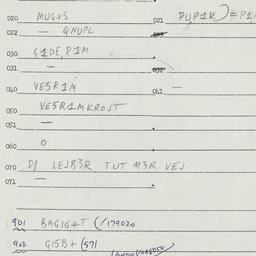 020 MUG+S 021 PUP1K)=P1
022 — QNUPL
030 G1DE,R1M
031 —
040 VE5R1M 041 —
050 VE5R1MKROJT
051 —
060 O
070 DJ LEJB3R TUT M3R VEJ
071 —
901 BAGIG+T (/179020
902 GI5B+ (571